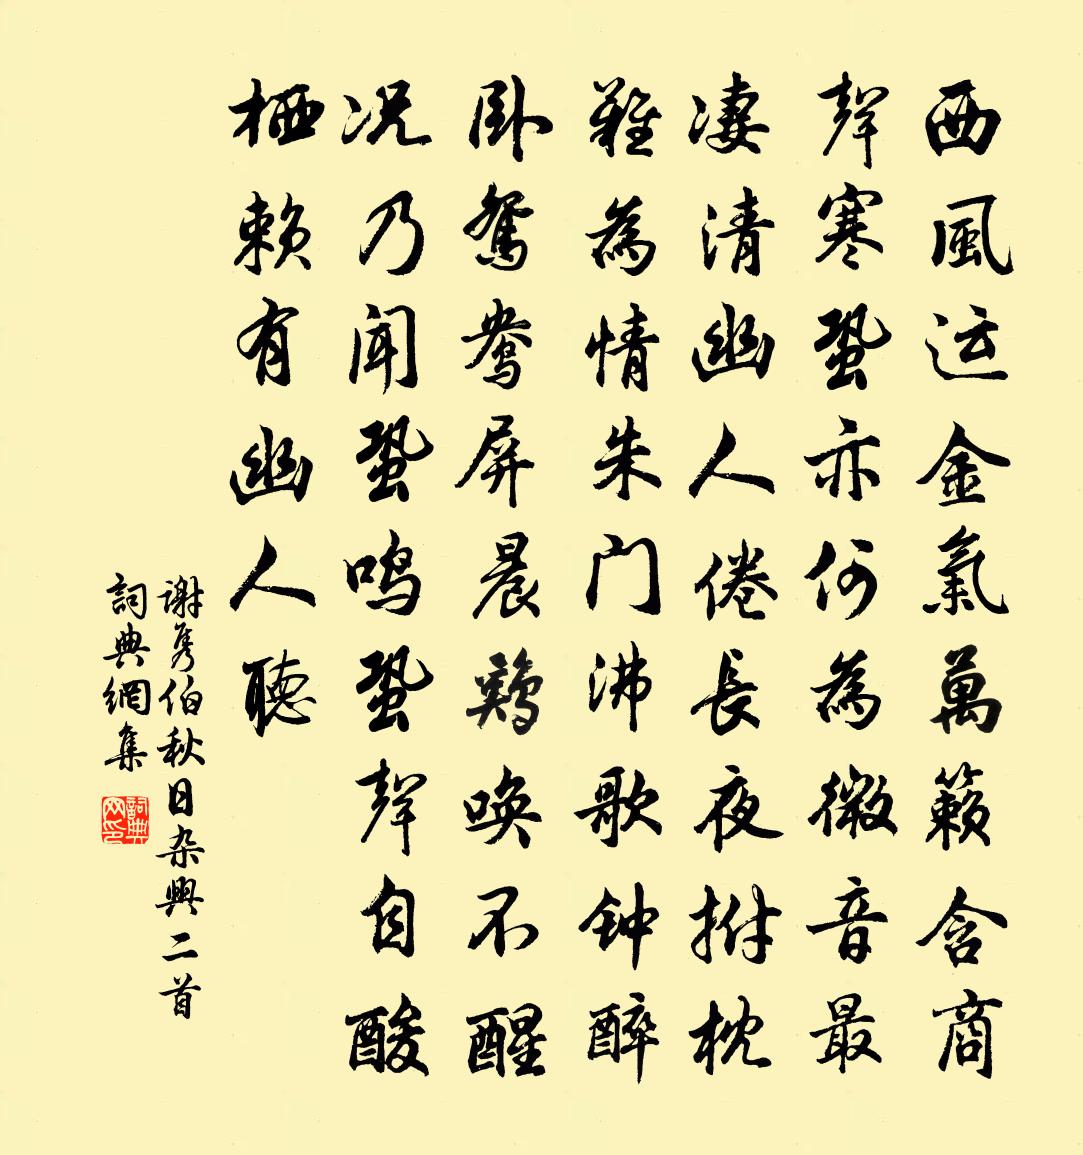 西風运金氣萬籟含商
聲寒蛩亦何為微音最
凄清幽人倦長夜拊枕
難為情朱门沸歌钟醉
卧鴛鴦屏晨鷄唤不醒
况乃闻蛩鸣蛩聲自酸
栖赖有幽人聽
谢隽伯秋日杂興二首
詞典網集
詞典网印